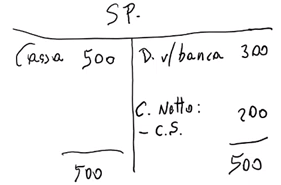 SP.
Cassa 500 D. v/ banca 300
C. Netto: 200
- C.S.
500 500